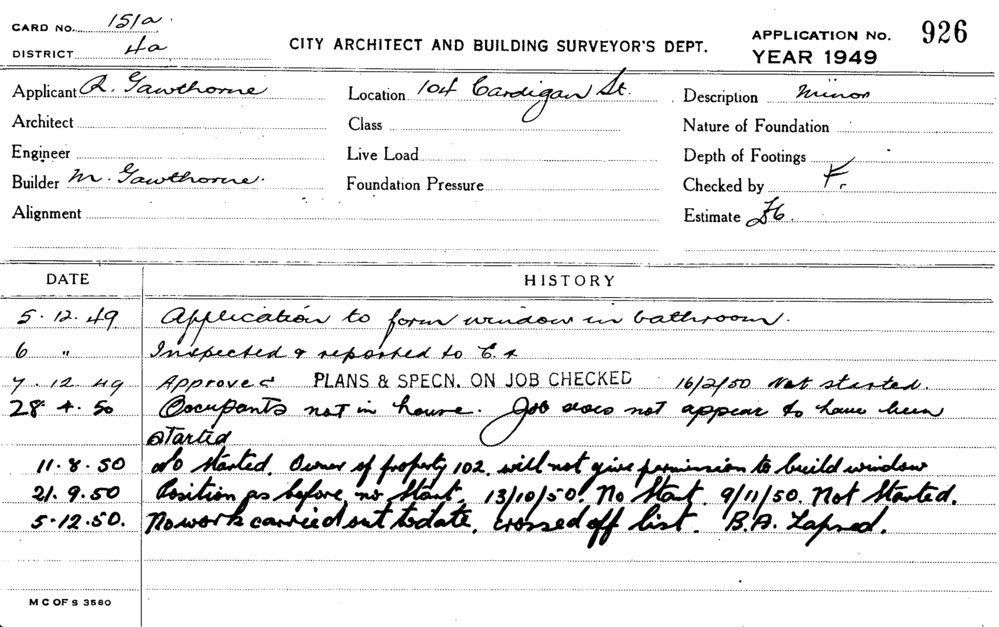 CARD NO. 151a.
DISTRICT 4a
CITY ARCHITECT AND BUILDING SURVEYOR'S DEPT.
APPLICATION NO. 926
YEAR 1949
Applicant R. Gawthorne
Location 104 Cardigan St.
Description Minor
Architect
Class
Nature of Foundation
Engineer
Live Load
Depth of Footings
Builder M. Gawthorne.
Foundation Pressure
Checked by F.
Alignment
Estimate £6.
DATE HISTORY
5.12.49 Application to form window in bathroom.
6 " Inspected & reported to C.
7.12.49 Approved PLANS & SPECN. ON JOB CHECKED 16/2/50 Not started.
28.4.50 Occupants not in house. Job does not appear to have been
started
11.8.50 No started. Owner of property 102. will not give permission to build window
21.9.50 Position as before, no start. 13/10/50. No Start. 9/11/50. Not Started.
5.12.50. No work carried out to date, crossed off list. B.A. Lapsed.
M C OF S 3580